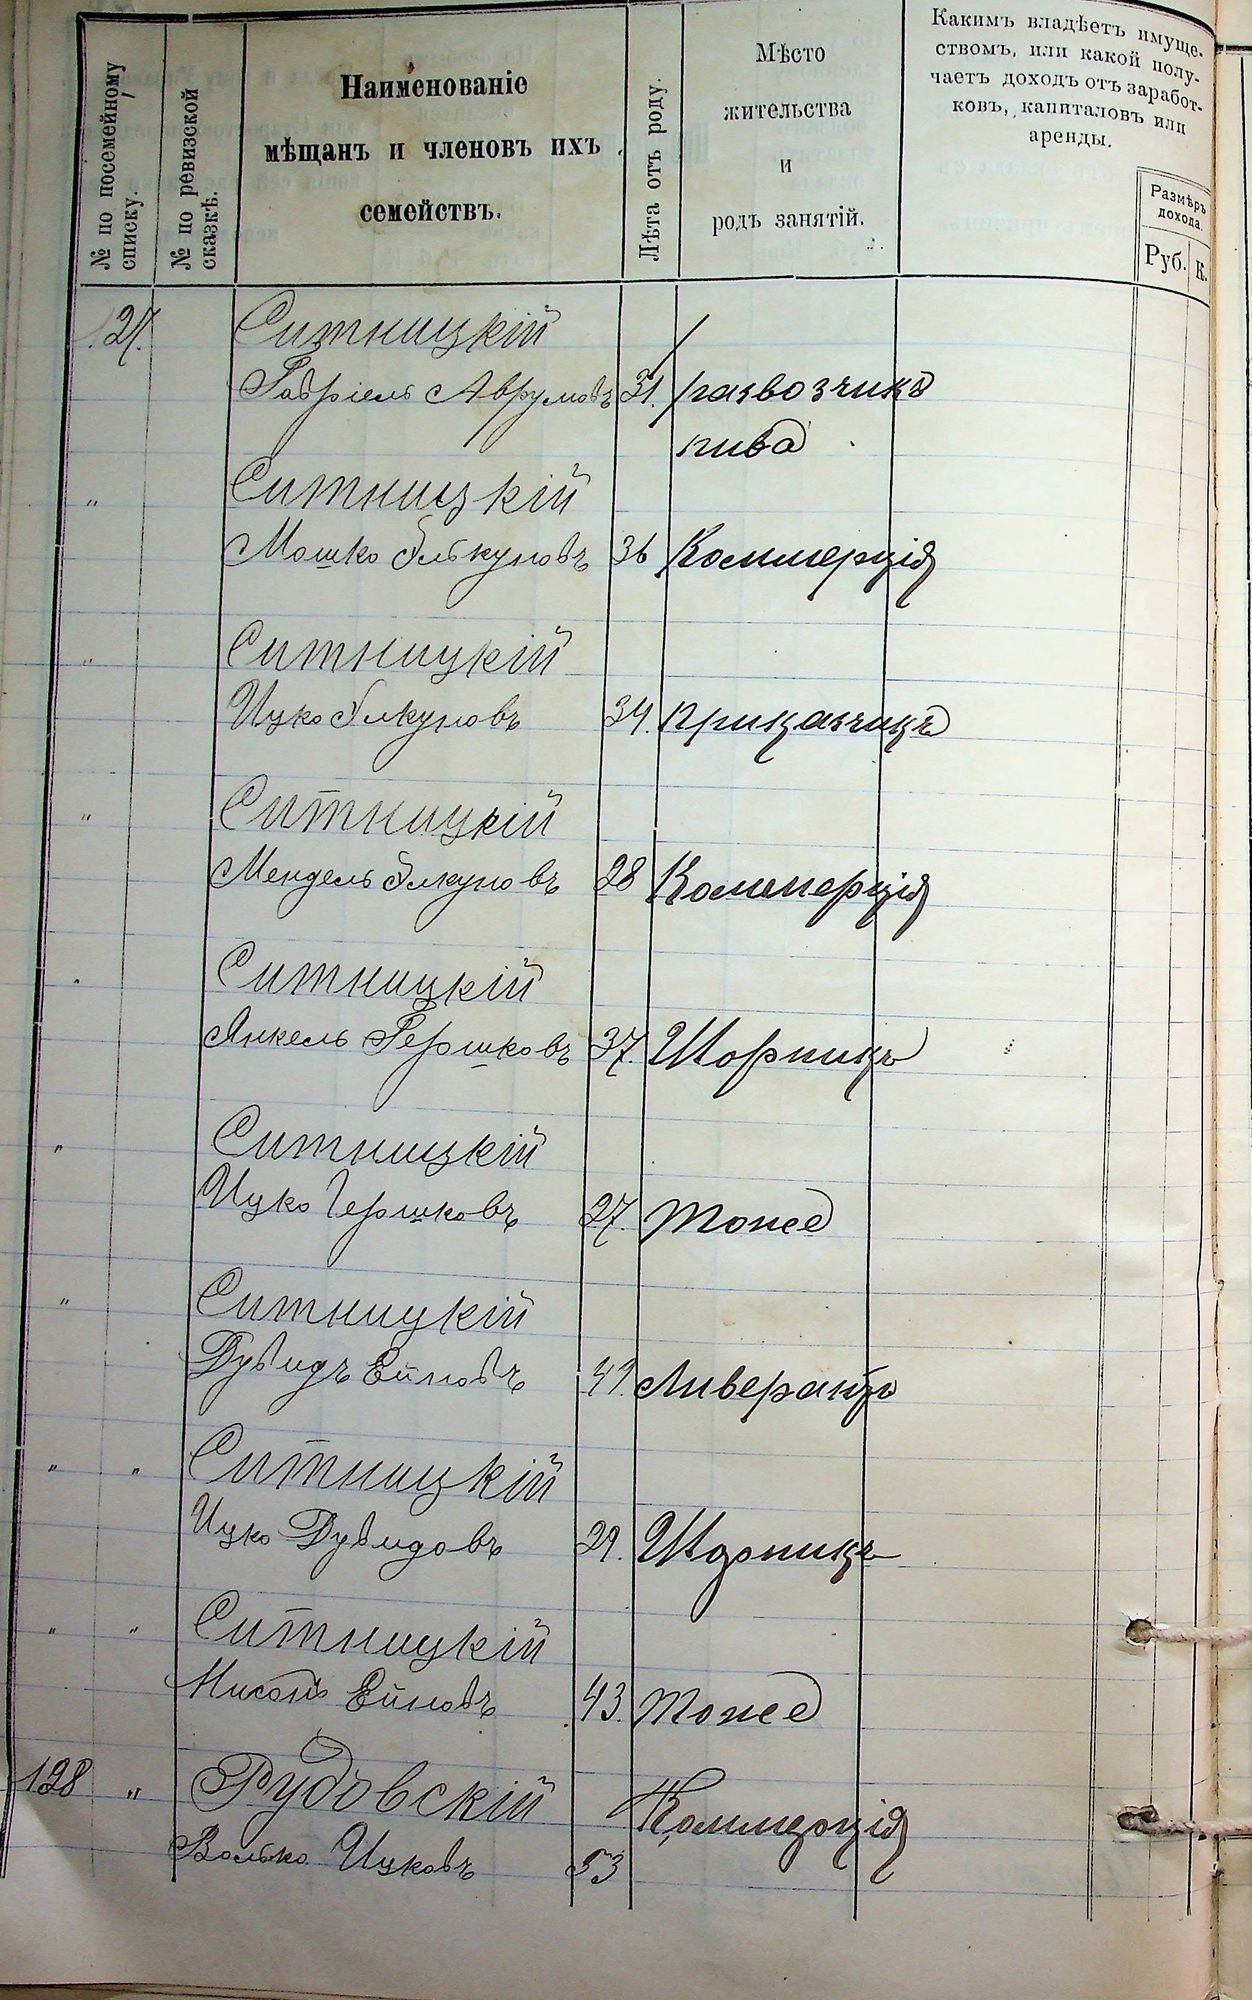 № по посемейному списку.
№ по ревизской сказкѣ.
Наименованіе
мѣщанъ и членовъ ихъ
семействъ.
Лѣта отъ роду.
Мѣсто
жительства
и
родъ занятій.
Какимъ владѣетъ имуще-
ствомъ, или какой полу-
чаетъ доходъ отъ заработ-
ковъ, капиталовъ или
аренды.
Размѣръ
дохода.
Руб. К.
127. Ситницкій
Габріель Аврумовъ 31. развозчикъ
пива
" Ситницкій
Мошко Элькуновъ 36 Коммерція
" Ситницкій
Ицко Элкуновъ 34. Приказчикъ
" Ситницкій
Мендель Элкуновъ 28 Коммерція
" Ситницкій
Янкель Гершковъ 37. Шорникъ
" Ситницкій
Ицко Гершковъ 27. тоже
" Ситницкій
Дувидъ Ейновъ 49. Ливерантъ
" " Ситницкій
Ицко Дувидовъ 29. Шорникъ
" " Ситницкій
Нисонъ Ейновъ 43. тоже
128 " Рудовскій Коммерція
Волько Ицковъ 53